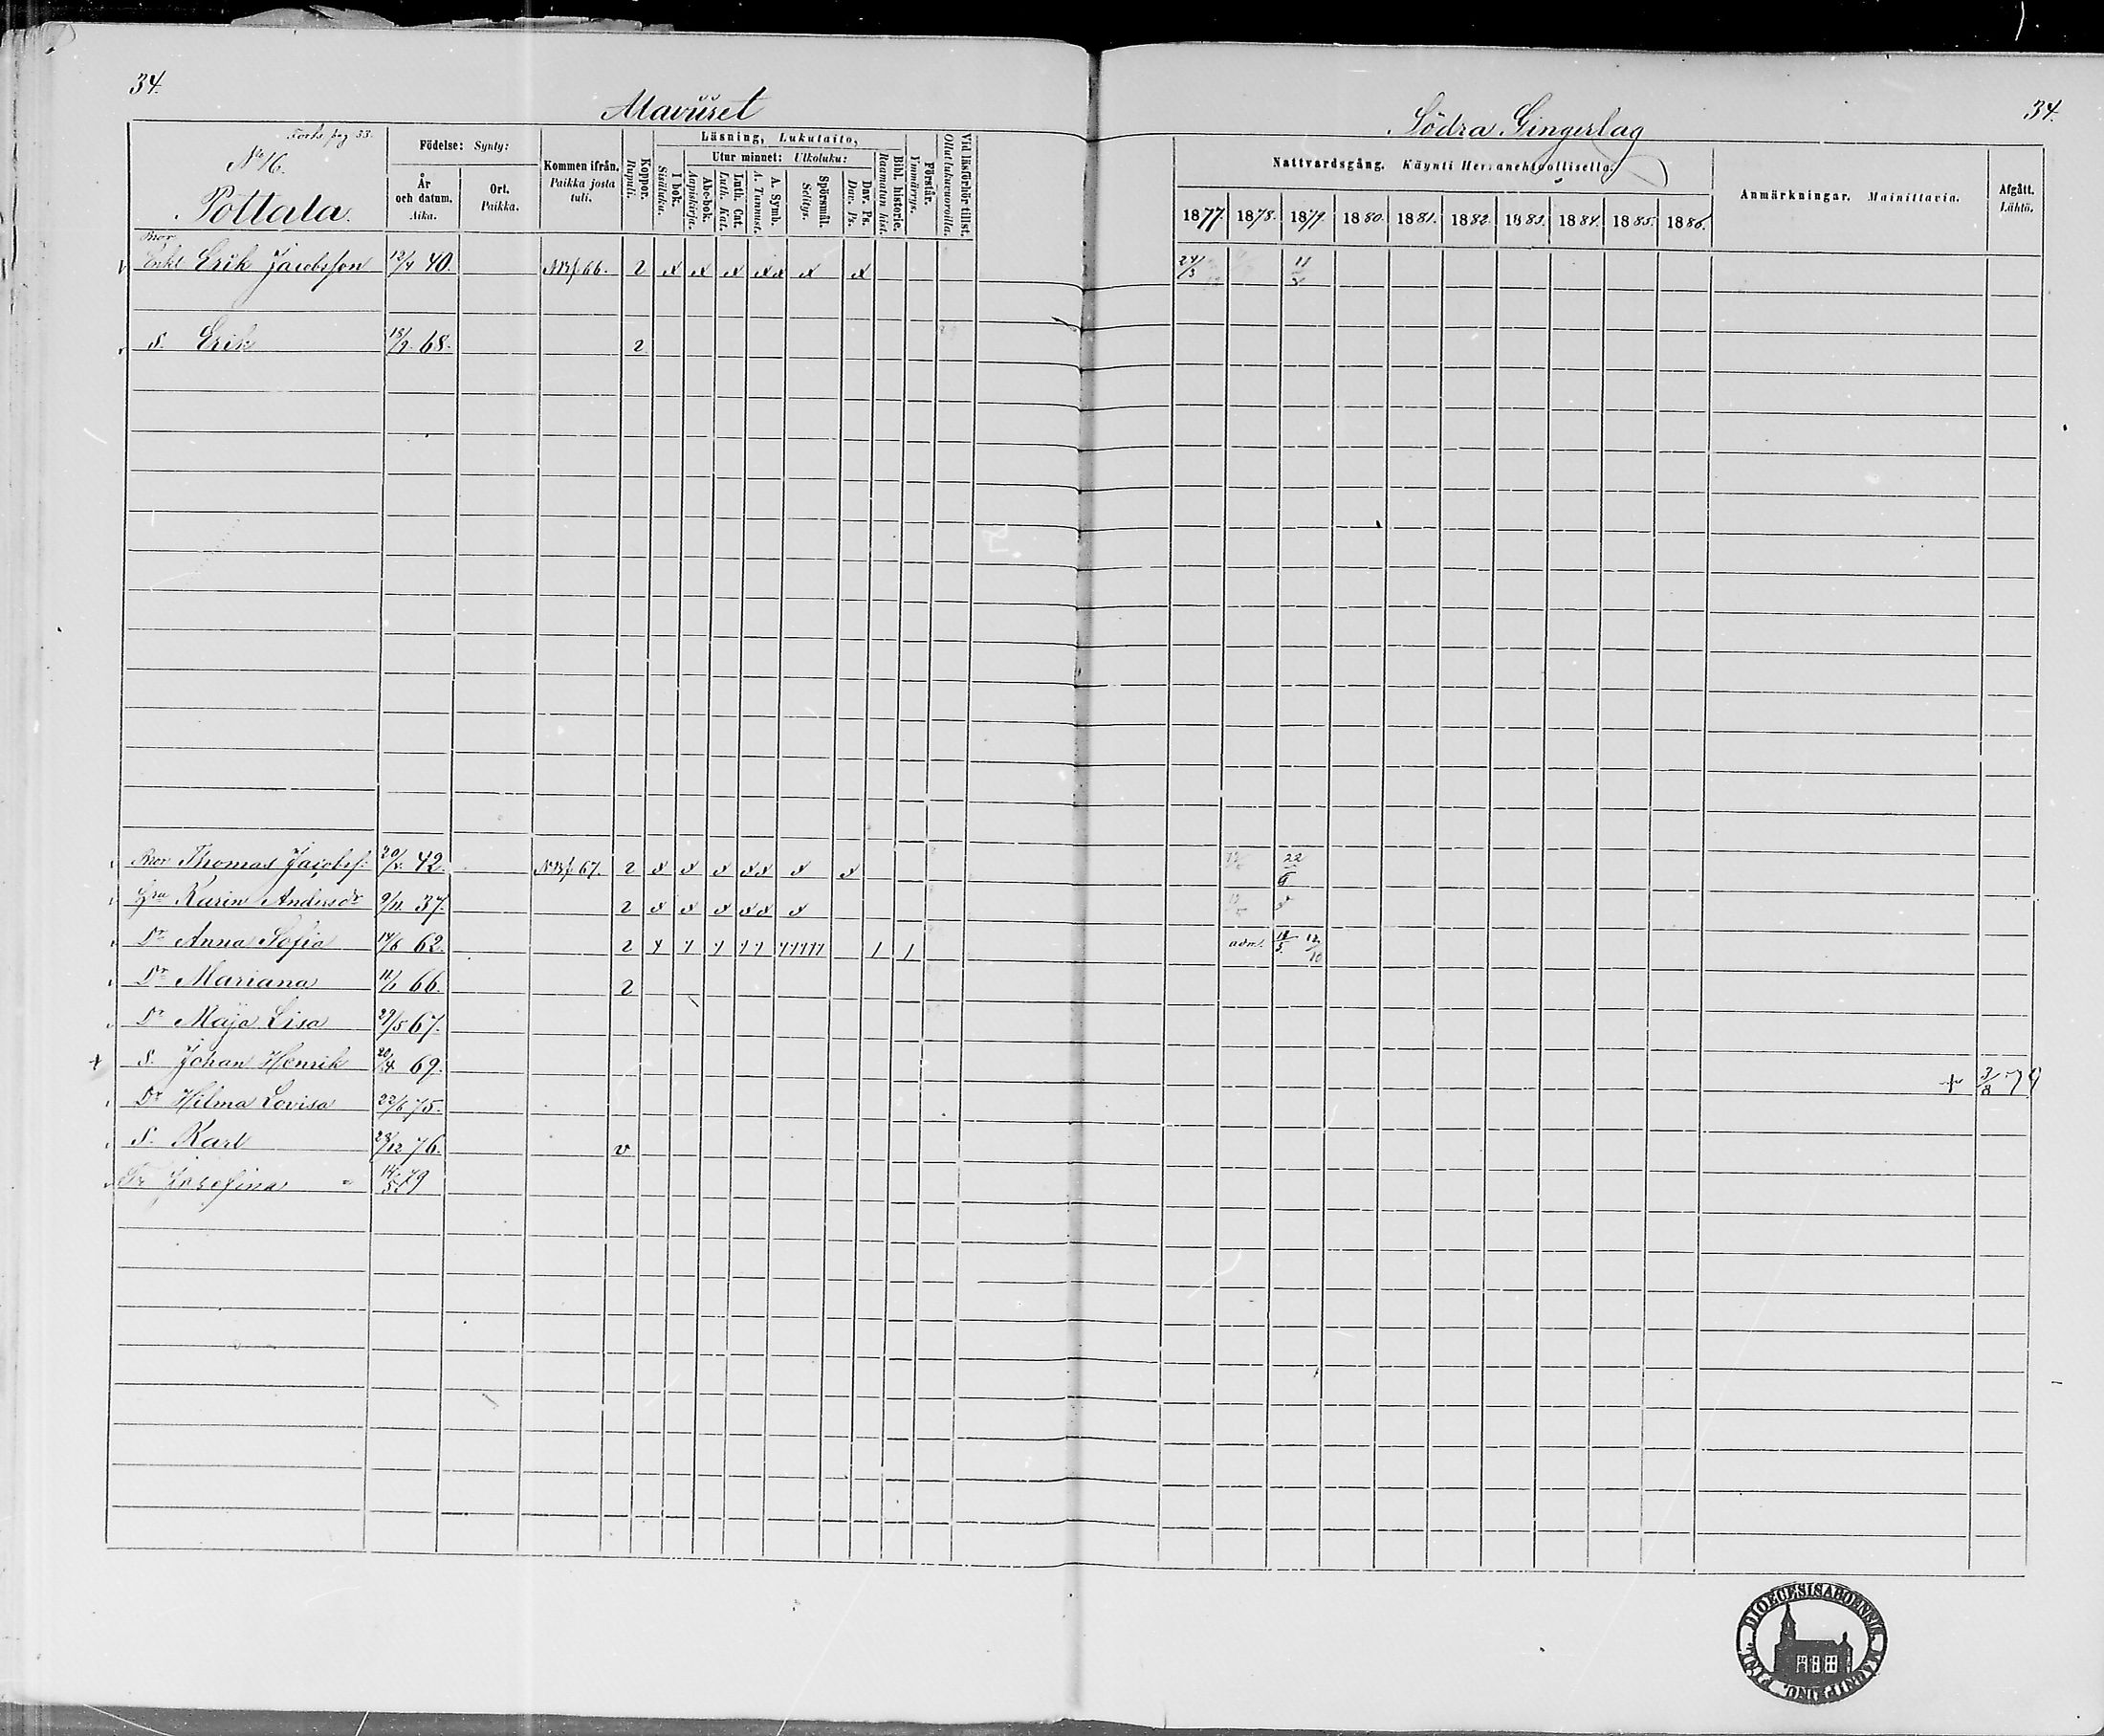 34.
Alavüset
Södra Gingerlag
34.
Forts. pag 33.
No 16.
Pottala.
Födelse: Synty:
År och datum. Aika.
Ort. Paikka.
Kommen ifrån. Paikka josta tuli.
Koppor. Rupuli.
Läsning, Lukutaito,
I bok. Sisältuku.
Utur minnet: Ulkoluku:
Abc-bok. Aapiskirja.
Luth. Cat. Luth. Kat.
A. Symb. A. Tunnust.
Spörsmål. Selitys.
Dav. Ps. Dav. Ps.
Bibl. historie. Raamatun hist.
Förstår. Ymmärrys.
Vid läsförhör tillst. Ollut lukuvuoroilla.
Nattvardsgång. Käynti Herranehtoollisella.
1877. 1878. 1879. 1880. 1881. 1882. 1883. 1884. 1885. 1886.
Anmärkningar. Mainittavia.
Afgått. Lähtö.
Bror
Enkl Erik Jacobsson 12/4 40. 66. 2 24/3
S. Erik 18/9 68. 2
Bror Thomas Jacobss. 42. 67. 2 22/9
Hru Karin Andersdr 9/11 37. 2
Dr Anna Sofia 14/6 62. 2 1 1 adm. 18/5 12/10
Dr Mariana 11/1 66. 2
Dr Maja Lisa 29/5 67.
+ S. Johan Henrik 20/4 69. + 3/8 79
Dr Hilma Lovisa 22/6 75.
S. Karl 28/12 76. v
Dr Josefina 14/5 79
DIOECESIS ABOENSIS